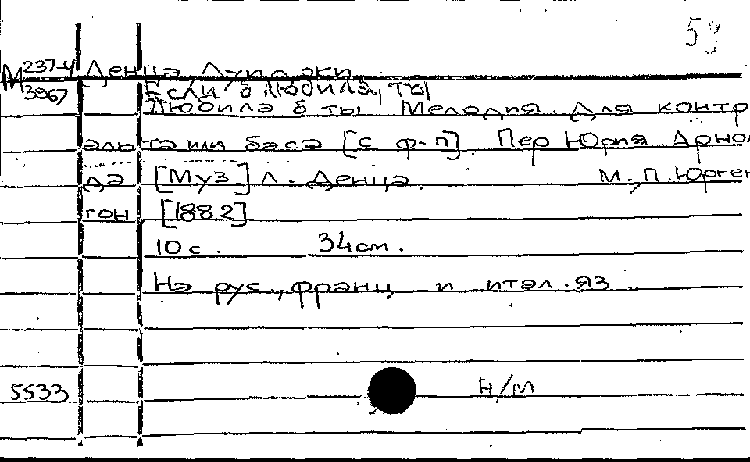 59
М 237-4 Денца, Луиджи.
3967 Если б любила ты
Любила б ты Мелодия. Для контр
альта или баса [с ф-п]. Пер Юрия Арноль
да [Муз] Л. Денца. М., П. Юрген
сон [1882]
10 с. 34 см.
На рус., франц и итал. яз
5533 Н/М